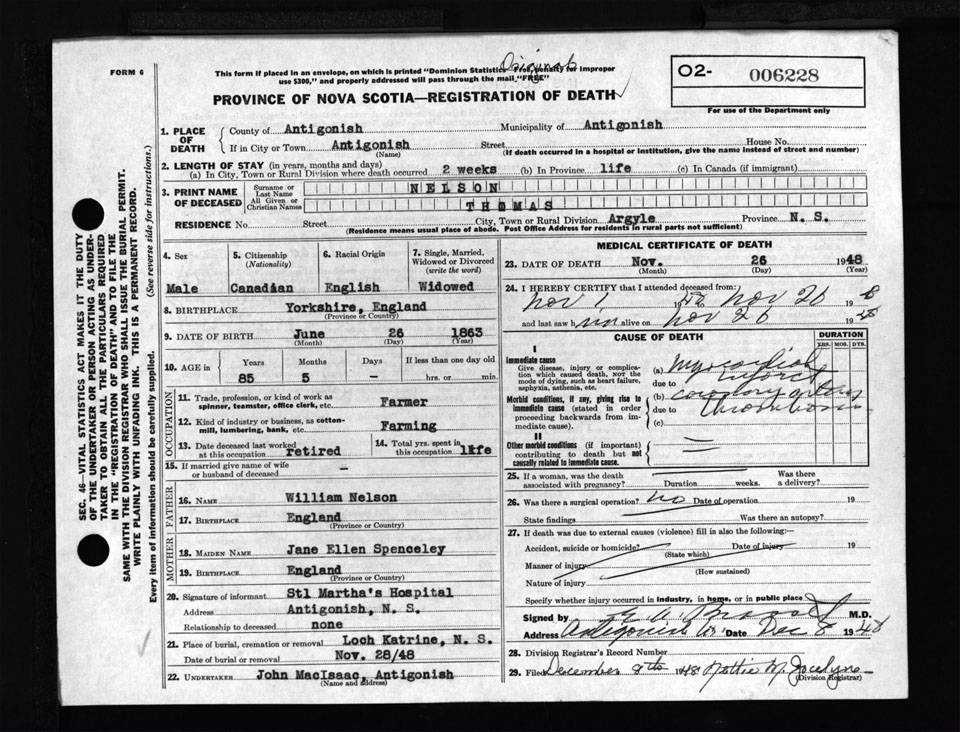 FORM 6
This form if placed in an envelope, on which is printed "Dominion Statistics Free, penalty for improper
use $300," and properly addressed will pass through the mail "FREE"
O2- 006228
For use of the Department only
PROVINCE OF NOVA SCOTIA—REGISTRATION OF DEATH
1. PLACE OF DEATH
County of Antigonish Municipality of Antigonish
If in City or Town Antigonish Street House No.
(Name) (If death occurred in a hospital or institution, give the name instead of street and number)
2. LENGTH OF STAY (in years, months and days)
(a) In City, Town or Rural Division where death occurred 2 weeks (b) In Province life (c) In Canada (if immigrant)
3. PRINT NAME OF DECEASED
Surname or Last Name NELSON
All Given or Christian Names THOMAS
RESIDENCE No. Street City, Town or Rural Division Argyle Province N. S.
(Residence means usual place of abode. Post Office Address for residents in rural parts not sufficient)
4. Sex
Male
5. Citizenship (Nationality)
Canadian
6. Racial Origin
English
7. Single, Married, Widowed or Divorced (write the word)
Widowed
8. BIRTHPLACE Yorkshire, England
(Province or Country)
9. DATE OF BIRTH June 26 1863
(Month) (Day) (Year)
10. AGE in Years Months Days If less than one day old
85 5 – hrs. or min.
OCCUPATION
11. Trade, profession or kind of work as spinner, teamster, office clerk, etc. Farmer
12. Kind of industry or business, as cotton-mill, lumbering, bank, etc. Farming
13. Date deceased last worked at this occupation retired
14. Total yrs. spent in this occupation life
15. If married give name of wife or husband of deceased –
FATHER
16. NAME William Nelson
17. BIRTHPLACE England
(Province or Country)
MOTHER
18. MAIDEN NAME Jane Ellen Spenceley
19. BIRTHPLACE England
(Province or Country)
20. Signature of informant Stl Martha's Hospital
Address Antigonish, N. S.
Relationship to deceased none
21. Place of burial, cremation or removal Loch Katrine, N. S.
Date of burial or removal Nov. 28/48
22. UNDERTAKER John MacIsaac, Antigonish
(Name and address)
MEDICAL CERTIFICATE OF DEATH
23. DATE OF DEATH Nov. 26 1948
(Month) (Day) (Year)
24. I HEREBY CERTIFY that I attended deceased from:
Nov 1 19 to Nov 26 19
and last saw him alive on Nov 26 1948
CAUSE OF DEATH
DURATION
YRS. MOS. DYS.
I
Immediate cause
Give disease, injury or complication which caused death, NOT the mode of dying, such as heart failure, asphyxia, asthenia, etc.
Morbid conditions, if any, giving rise to immediate cause (stated in order proceeding backwards from immediate cause).
II
Other morbid conditions (if important) contributing to death but not causally related to immediate cause.
(a) Myocardial infarct
due to
(b) coronary artery
due to thrombosis
(c)
25. If a woman, was the death associated with pregnancy? Duration weeks. Was there a delivery?
26. Was there a surgical operation? no Date of operation 19
State findings Was there an autopsy?
27. If death was due to external causes (violence) fill in also the following:—
Accident, suicide or homicide? Date of injury 19
(State which)
Manner of injury
(How sustained)
Nature of injury
Specify whether injury occurred in industry, in home, or in public place
Signed by M.D.
Address Antigonish NS Date Dec 8 1948
28. Division Registrar's Record Number
29. Filed December 8th 1948 Nottie M. Jocelyne
(Division Registrar)
SEC. 46—VITAL STATISTICS ACT MAKES IT THE DUTY
OF THE UNDERTAKER OR PERSON ACTING AS UNDERTAKER TO OBTAIN ALL THE PARTICULARS REQUIRED
IN THE "REGISTRATION OF DEATH" AND TO FILE THE
SAME WITH THE DIVISION REGISTRAR WHO SHALL ISSUE THE BURIAL PERMIT.
WRITE PLAINLY WITH UNFADING INK. THIS IS A PERMANENT RECORD.
Every item of information should be carefully supplied. (See reverse side for instructions.)